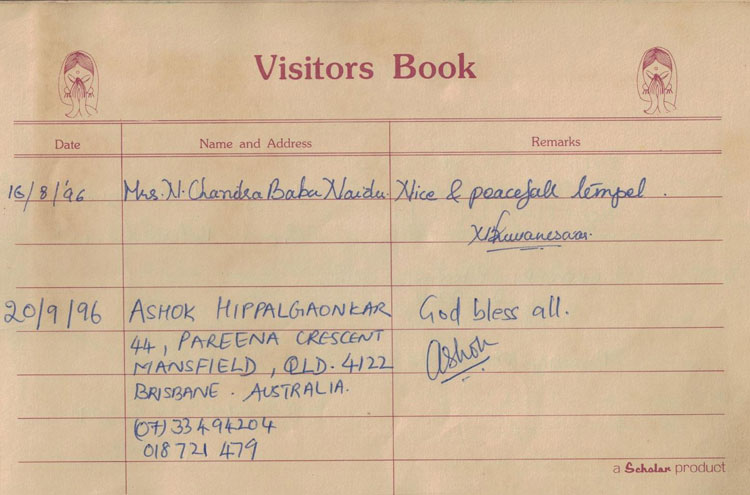 Visitors Book
Date Name and Address Remarks
16/8/'96 Mrs. N. Chandra Babu Naidu. Nice & peacefull tempel.
N Bhuvaneswari.
20/9/96 ASHOK HIPPALGAONKAR God bless all.
44, PAREENA CRESCENT
Ashok
MANSFIELD, QLD. 4122
BRISBANE. AUSTRALIA.
(07) 33494204
018 721 479
a Scholar product